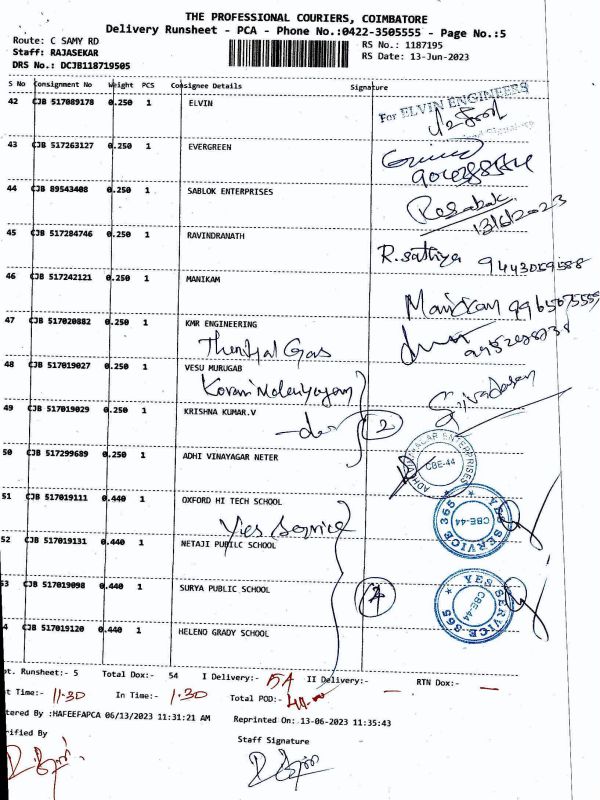 THE PROFESSIONAL COURIERS, COIMBATORE
Delivery Runsheet - PCA - Phone No.:0422-3505555 - Page No.:5
Route: C SAMY RD
RS No.: 1187195
Staff: RAJASEKAR
RS Date: 13-Jun-2023
DRS No.: DCJB118719505
S No Consignment No Weight PCS Consignee Details Signature
42 CJB 517089178 0.250 1 ELVIN
For ELVIN ENGINEERS
43 CJB 517263127 0.250 1 EVERGREEN
44 CJB 89543408 0.250 1 SABLOK ENTERPRISES
13/6/2023
45 CJB 517284746 0.250 1 RAVINDRANATH R.sathiya 9443059588
46 CJB 517242121 0.250 1 MANIKAM
47 CJB 517020882 0.250 1 KMR ENGINEERING
Gas
48 CJB 517019027 0.250 1 VESU MURUGAB
49 CJB 517019029 0.250 1 KRISHNA KUMAR.V
2
50 CJB 517299689 0.250 1 ADHI VINAYAGAR NETER
ADHI VINAYAGAR ENTERPRISES CBE-44
51 CJB 517019111 0.440 1 OXFORD HI TECH SCHOOL
YES SERVICE 365 CBE-44
Yies Service
52 CJB 517019131 0.440 1 NETAJI PUBILC SCHOOL
53 CJB 517019098 0.440 1 SURYA PUBLIC SCHOOL
YES SERVICE 365 CBE-44
4 CJB 517019120 0.440 1 HELENO GRADY SCHOOL
pt. Runsheet:- 5 Total Dox:- 54 I Delivery:- 54 II Delivery:- — RTN Dox:- —
t Time:- 11.30 In Time:- 1.30 Total POD:-
tered By :HAFEEFAPCA 06/13/2023 11:31:21 AM Reprinted On: 13-06-2023 11:35:43
rified By
Staff Signature